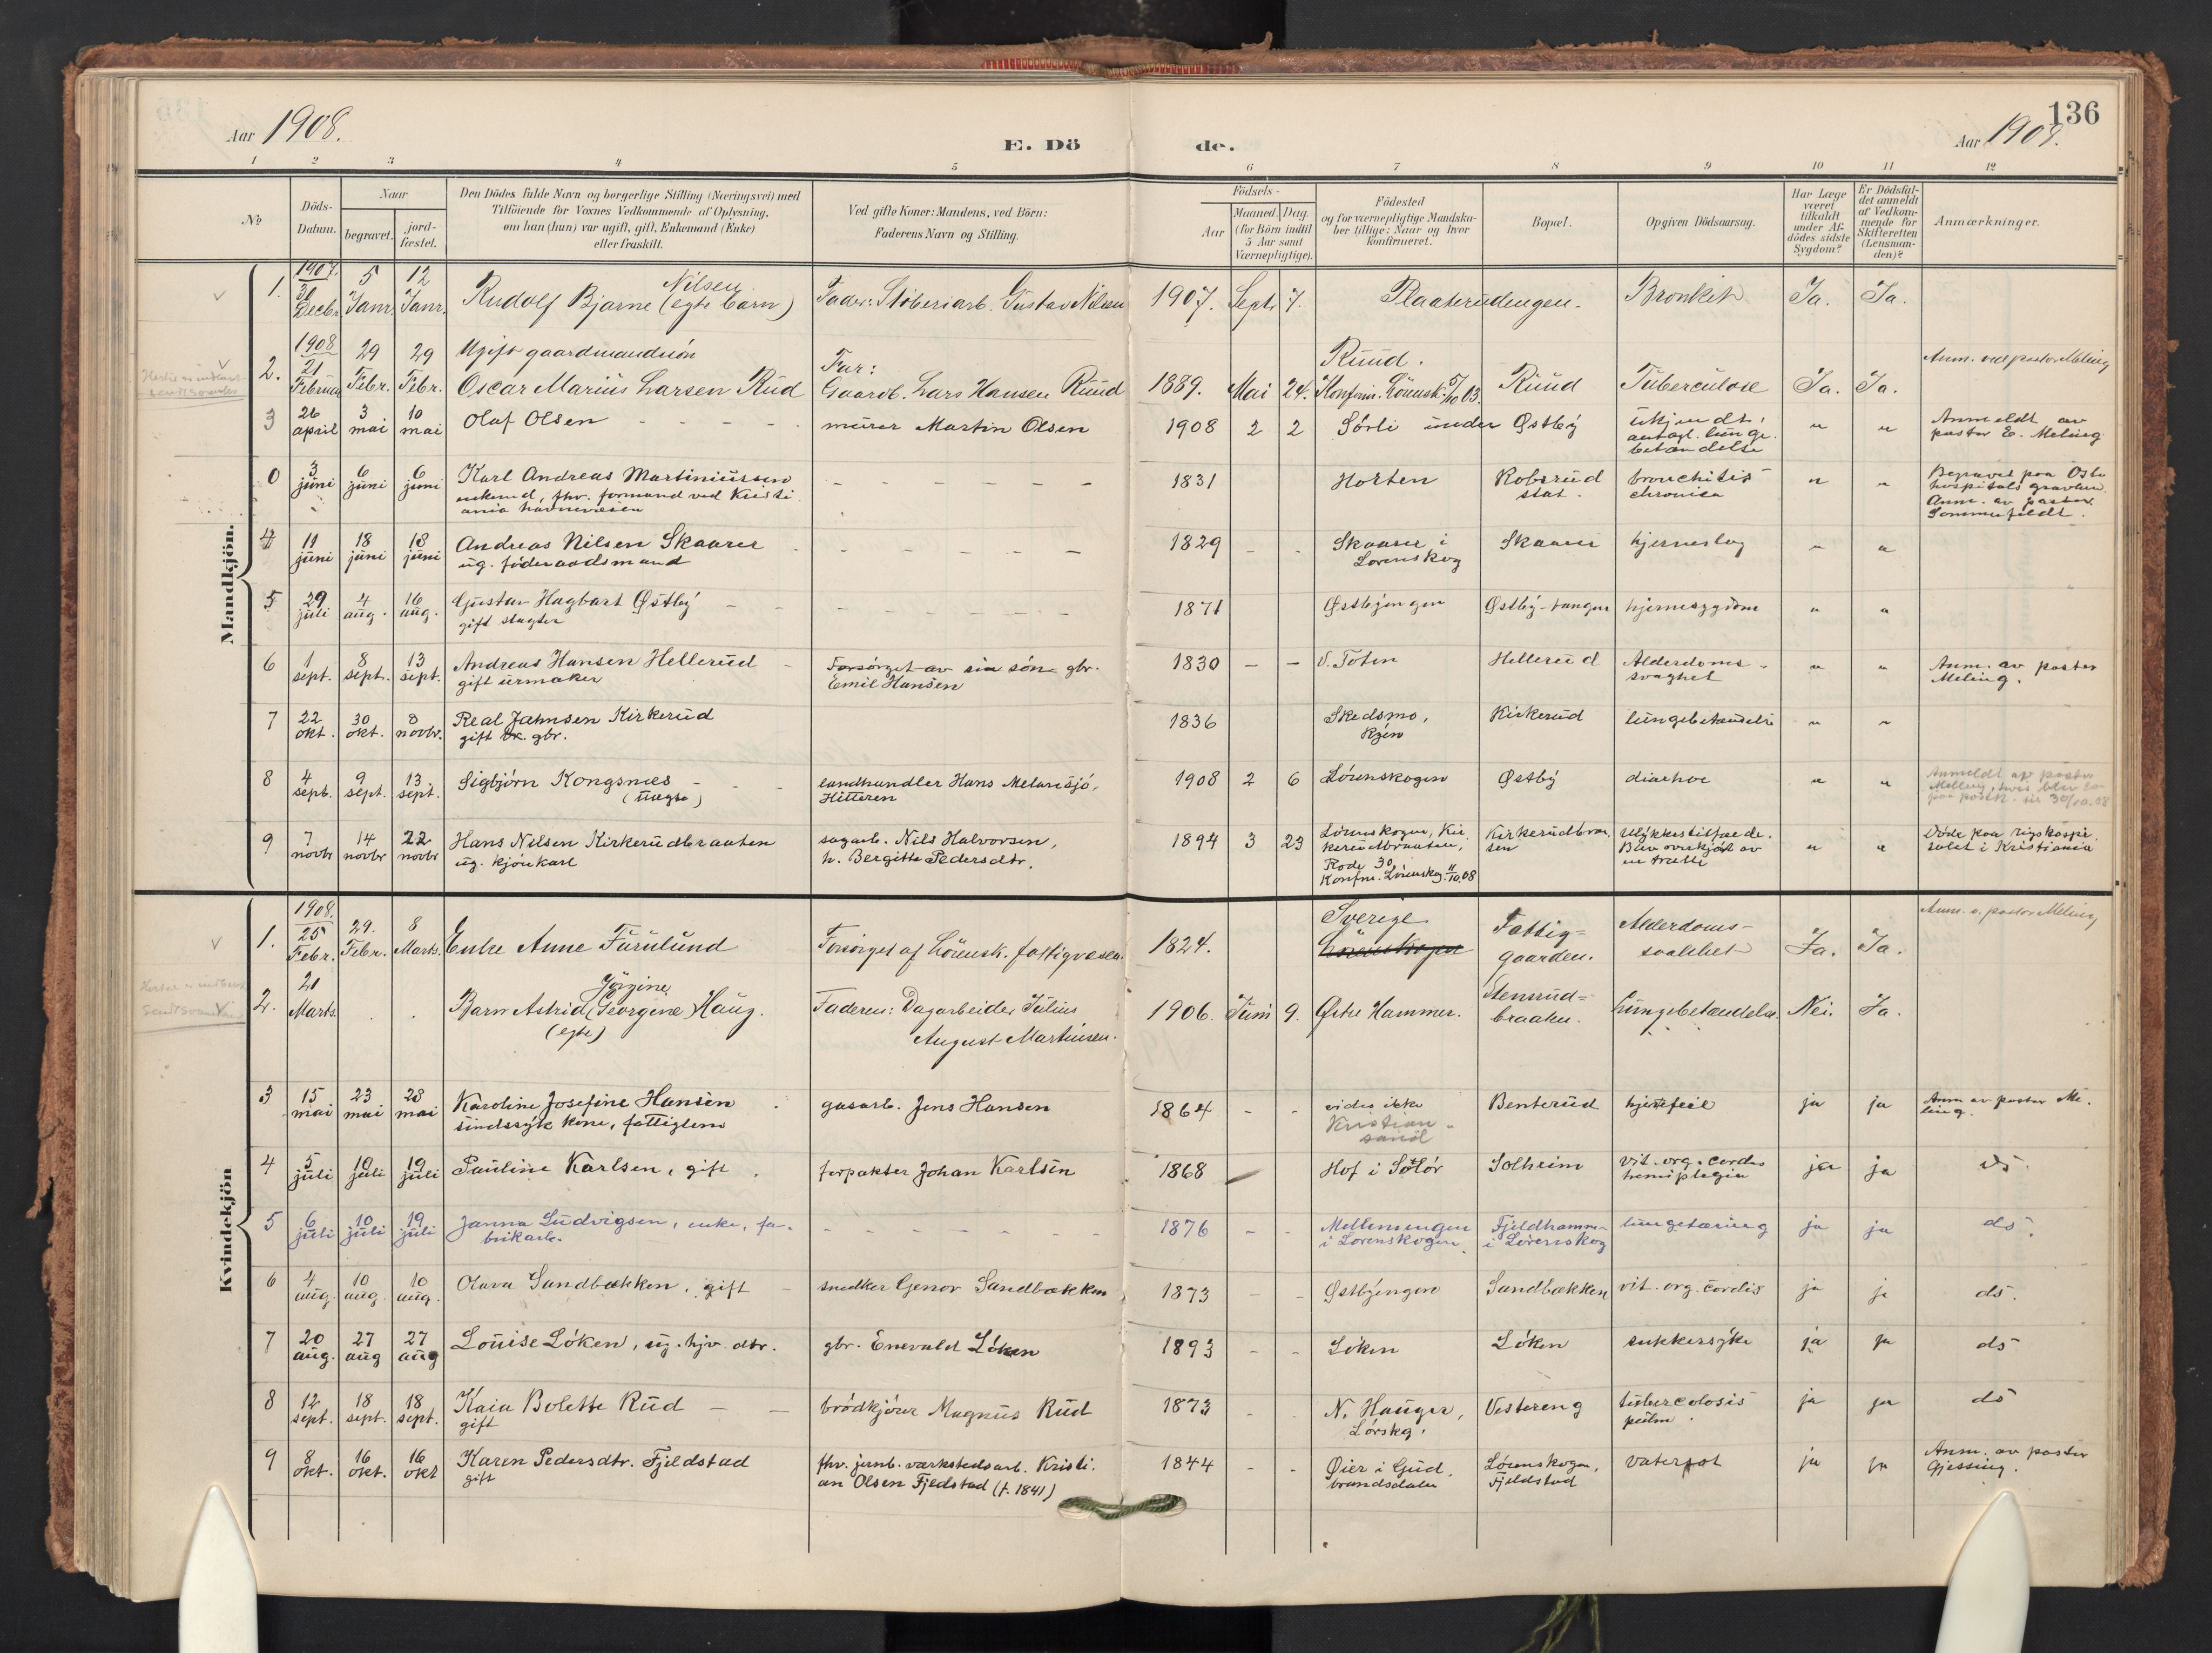 136
Aar 1908.
E. Dö de.
Aar 1908.
1 2 3 4 5 6 7 8 9 10 11 12
No
Döds-Datum.
Naar
begravet.
jord-fæstet.
Den Dödes fulde Navn og borgerlige Stilling (Næringsvei) med
Tilföiende for Voxnes Vedkommende af Oplysning,
om han (hun) var ugift, gift, Enkemand (Enke)
eller fraskilt.
Ved gifte Koner: Mandens, ved Börn:
Faderens Navn og Stilling.
Födsels-
Aar
Maaned. Dag.
(for Börn indtil
5 Aar samt
Værnepligtige).
Födested
og for værnepligtige Mandska-
ber tillige: Naar og hvor
konfirmeret.
Bopæl.
Opgiven Dödsaarsag.
Har Læge
været
tilkaldt
under Af-
dödes sidste
Sygdom?
Er Dödsfal-
det anmeldt
af Vedkom-
mende for
Skifteretten
(Lensman-
den)?
Anmærkninger.
Mandkjön.
1. 1907. 30 Decbr. 5 Janr. 12 Janr. Rudolf Bjarne Nilsen (egte barn) Fader: Støberiarb. Gustav Nilsen 1907. Sept. 7. Plaaterudengen. Bronkit Ja. Ja.
2. 1908 21 Februar 29 Febr. 29 Febr. Ugift gaardmandsön
Oscar Marius Larsen Rud Far:
Gaardb. Lars Hansen Ruud 1889. Mai 24. Ruud.
Konfirm. Lörensk. 5/10 03. Ruud Tuberculose Ja. Ja. Anm. ved pastor Meling
3 26 april 3 mai 10 mai Olaf Olsen murer Martin Olsen 1908 2 2 Sörli under Østby ukjendt,
antagl. lunge-
betændelse " " Anmeldt av
pastor E. Meling
0 3 juni 6 juni 6 juni Karl Andreas Martiniussen
enkemd, fhv. formand ved Kristi
ania havnevæsen 1831 Horten Robsrud
stat. bronchitis
chronica " " Begravet paa Oslo
hospitals gravlund.
Anm. av pastor
Sommerfeldt.
4 11 juni 18 juni 18 juni Andreas Nilsen Skaarer
ug. föderaadsmand 1829 Skaarer i
Lorenskog Skaarer hjerneslag " "
5 29 juli 4 aug. 16 aug. Gustav Hagbart Østby
gift slagter 1871 Østbyengen Østby-tangen hjernesygdom " "
6 1 sept. 8 sept. 13 sept. Andreas Hansen Hellerud
gift urmaker Forsörget av sin sön gbr.
Emil Hansen 1830 V. Toten Hellerud Alderdoms-
svaghet " " Anm. av pastor
Meling.
7 22 okt. 30 okt. 8 novbr. Real Jahnsen Kirkerud
gift gbr. 1836 Skedsmo, Kirkerud lungebetændelse " "
8 4 sept. 9 sept. 13 sept. Sigbjörn Kongsnæs
(uægte) landhandler Hans Melansjö,
Hitteren 1908 2 6 Lörenskogen Østby diarhoe " " Anmeldt av pastor
9 7 novbr 14 novbr 22 novbr Hans Nilsen Kirkerudbraaten
ug. kjörekarl sagarb. Nils Halvorsen,
h. Bergitte Pedersdtr. 1894 3 23 Lörenskogen, Kir-
kerudbraaten,
Rode 30
Konfm. Lörenskog 11/10.08 Kirkerudbraa-
ten Ulykkestilfælde.
Blev overkjört av
en trælle " " Döde paa rigshospi-
talet i Kristiania
Kvindekjön
1. 1908. 25 Febr. 29. Febr. 8 Marts. Enke Anne Furulund Forsörget af Lörensk. fattigvæsen. 1824. Sverige
Lörenskogen Fattig-
gaarden. Alderdoms-
svakhet Ja. Ja. Anm. v. pastor Meling
2. 21 Marts. Barn Astrid Georgine Haug. Jörgine
(egte) Faderen: Dagarbeider Julius
August Martinsen. 1906. Juni 9. Østre Hammer. Stensrud-
braaten. Lungebetændelse. Nei. Ja.
3 15 mai 23 mai 28 mai Karoline Josefine Hansen
sindssyk kone, fattiglem gasarb. Jens Hansen 1864 vides ikke
Kristian-
sand Benterud hjertefeil ja ja Anm av pastor Me-
ling.
4 5 juli 10 juli 19 juli Pauline Karlsen, gift forpakter Johan Karlsen 1868 Hof i Solör Solheim vit. org. cordis
hemiplegia ja ja ds.
5 6 juli 10 juli 19 juli Janna Ludvigsen, enke, fa-
brikarb. 1876 Mellemengen
i Lorenskogen. Fjeldhammer
i Lörenskog lungetæring ja ja ds.
6 4 aug. 10 aug. 10 aug. Olava Sandbækken, gift snedker Genor Sandbækken 1873 Østbyengen Sandbækken vit. org. cordis ja ja ds.
7 20 aug. 27 aug 27 aug Louise Löken, ug. hjv. dtr. gbr. Enevald Löken 1893 Löken Löken sukkersyke ja ja ds
8 12 sept. 18 sept. 18 sept. Kaia Bolette Rud
gift brödkjörer Magnus Rud 1873 N. Hauger,
Lörskg. Vestereng tubercolosis
pulm. ja ja ds
9 8 okt. 16 okt. 16 okt Karen Pedersdtr. Fjeldstad
gift fhv. jernb. værkstedsarb. Kristi-
an Olsen Fjeldstad (f. 1841) 1844 Øier i Gud-
brandsdalen Lörenskogen,
Fjeldstad vatersot ja ja Anm. av pastor
Gjessing.